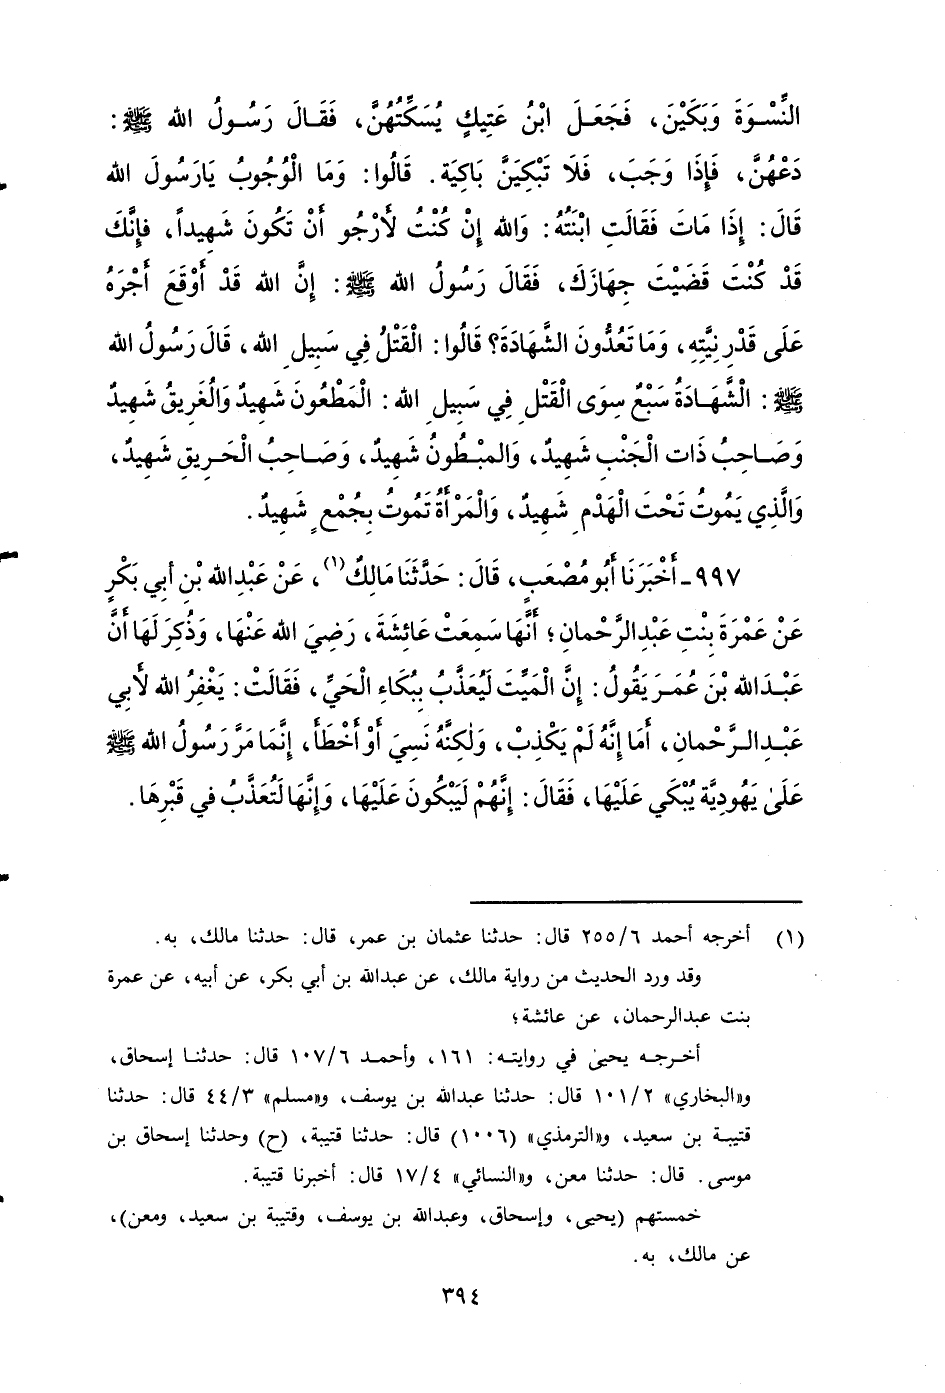 النِّسْوَةَ وَبَكَيْنَ، فَجَعَلَ ابْنُ عَتِيكٍ يُسَكِّتُهُنَّ، فَقَالَ رَسُولُ الله ﷺ:
دَعْهُنَّ، فَإِذَا وَجَبَ، فَلَا تَبْكِيَنَّ بَاكِيَة. قَالُوا: وَمَا الْوُجُوبُ يَارَسُولَ الله
قَالَ: إِذَا مَاتَ فَقَالَتِ ابْنَتُهُ: وَالله إِنْ كُنْتُ لأَرْجُو أَنْ تَكُونَ شَهِيداً، فإِنَّكَ
قَدْ كُنْتَ قَضَيْتَ جِهَازَكَ، فَقَالَ رَسُولُ الله ﷺ: إِنَّ الله قَدْ أَوْقَعَ أَجْرَهُ
عَلَى قَدْرِ نِيَّتِهِ، وَمَا تَعُدُّونَ الشَّهَادَةَ؟ قَالُوا: الْقَتْلُ فِي سَبِيلِ الله، قَالَ رَسُولُ الله
ﷺ: الْشَّهَادَةُ سَبْعٌ سِوَى الْقَتْلِ فِي سَبِيلِ الله: الْمَطْعُونَ شَهِيدٌ وَالْغَرِيقُ شَهِيدٌ
وَصَاحِبُ ذَات الْجَنْبِ شَهِيدٌ، وَالمَبْطُونُ شَهِيدٌ، وَصَاحِبُ الْحَرِيقِ شَهِيدٌ،
وَالَّذِي يَمُوتُ تَحْتَ الْهَدْمِ شَهِيدٌ، وَالْمَرْأَةُ تَمُوتُ بِجُمْعٍ شَهِيدٌ.
٩٩٧- أَخْبَرَنَا أَبُو مُصْعَبٍ، قَالَ: حَدَّثَنَا مَالِكٌ(١)، عَنْ عَبْدِالله بْنِ أبِي بَكْرٍ
عَنْ عَمْرَةَ بِنْتِ عَبْدِالرَّحْمانِ؛ أَنَّهَا سَمِعَتْ عَائِشَةَ، رَضِيَ الله عَنْهَا، وَذُكِرَ لَهَا أَنَّ
عَبْدَالله بْنَ عُمَرَ يَقُولُ: إِنَّ الْمَيِّتَ لَيُعَذَّبُ بِبُكَاءِ الْحَيِّ، فَقَالَتْ: يَغْفِرُ الله لأَبِي
عَبْدِالرَّحْمانِ، أَمَا إِنَّهُ لَمْ يَكْذِبْ، وَلٰكِنَّهُ نَسِيَ أَوْ أَخْطَأَ، إِنَّمَا مَرَّ رَسُولُ الله ﷺ
عَلَىٰ يَهُودِيَّة يُبْكَي عَلَيْهَا، فَقَالَ: إِنَّهُمْ لَيَبْكُونَ عَلَيْهَا، وَإِنَّهَا لَتُعَذَّبُ فِي قَبْرِهَا.
(١) أخرجه أحمد ٢٥٥/٦ قال: حدثنا عثمان بن عمر، قال: حدثنا مالك، به.
وقد ورد الحديث من رواية مالك، عن عبدالله بن أبي بكر، عن أبيه، عن عمرة
بنت عبدالرحمان، عن عائشة؛
أخرجه يحيىٰ في روايته: ١٦١، وأحمد ١٠٧/٦ قال: حدثنا إسحاق،
و«البخاري» ١٠١/٢ قال: حدثنا عبدالله بن يوسف، و«مسلم» ٤٤/٣ قال: حدثنا
قتيبة بن سعيد، و«الترمذي» (١٠٠٦) قال: حدثنا قتيبة، (ح) وحدثنا إسحاق بن
موسى. قال: حدثنا معن، و«النسائي» ١٧/٤ قال: أخبرنا قتيبة.
خمستهم (يحيى، وإسحاق، وعبدالله بن يوسف، وقتيبة بن سعيد، ومعن)،
عن مالك، به.
٣٩٤